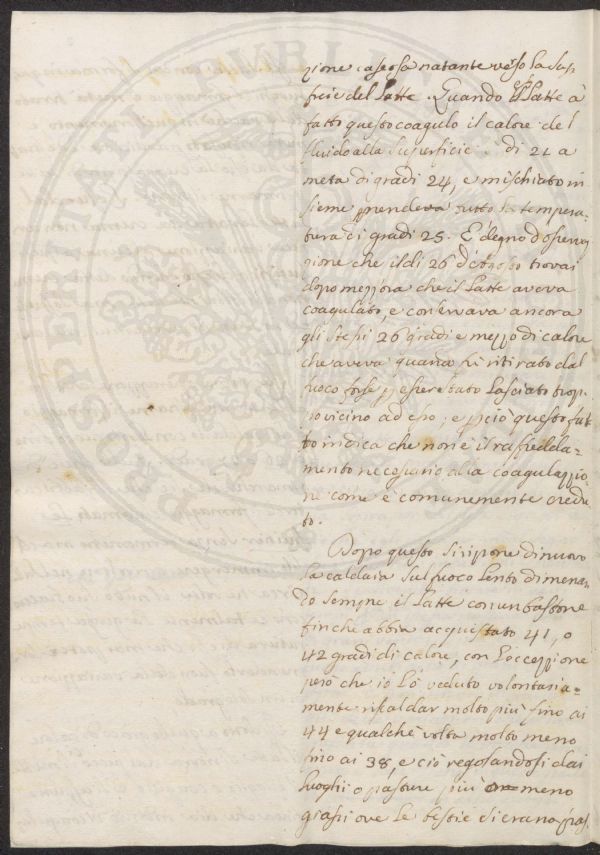 zione caseosa natante verso la su-
ficie del Latte. Quando il Latte à
fatto questo coagulo il calore del
fluido alla superficie di 21 a
metà di gradi 24, e mischiato in
sieme prendeva tutto la tempera-
tura di gradi 25. E degno d'osserva
zione che il di 26 trovai
dopo mezzora che il Latte aveva
coagulato, e conservava ancora
gli stessi 26 gradi e mezzo di calore
che aveva quando fù ritirato dal
fuoco forse p essere stato Lasciato trop
po vicino ad esso, e pciò questo fat
to indica che non è il raffredda-
mento necessario alla coagulazzio
ne come è comunemente credu
to.
Dopo questo si ripone di nuovo
la caldaia sul fuoco Lento dimenan
do sempre il Latte con un bastone
finche abbia acquistato 41, o
42 gradi di calore, con l'occezzione
però che io l'ò veduto volontaria-
mente riscaldar molto più fino ai
44 e qualche volta molto meno
fino ai 38, e ciò regolandosi dai
luoghi o pasture più o meno
grassi ove le bestie si erano pas